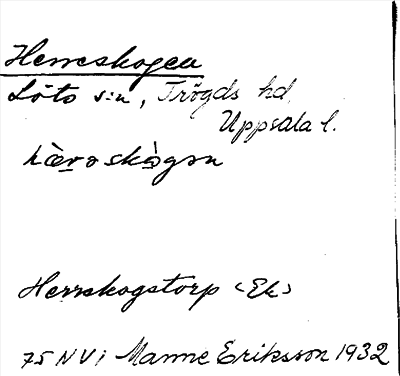 Herreskogen
Löts sn, Trögds hd,
Uppsala l.
hæ̀ro skògən
Herrskogstorp <Ek>
75 NV i Manne Eriksson 1932